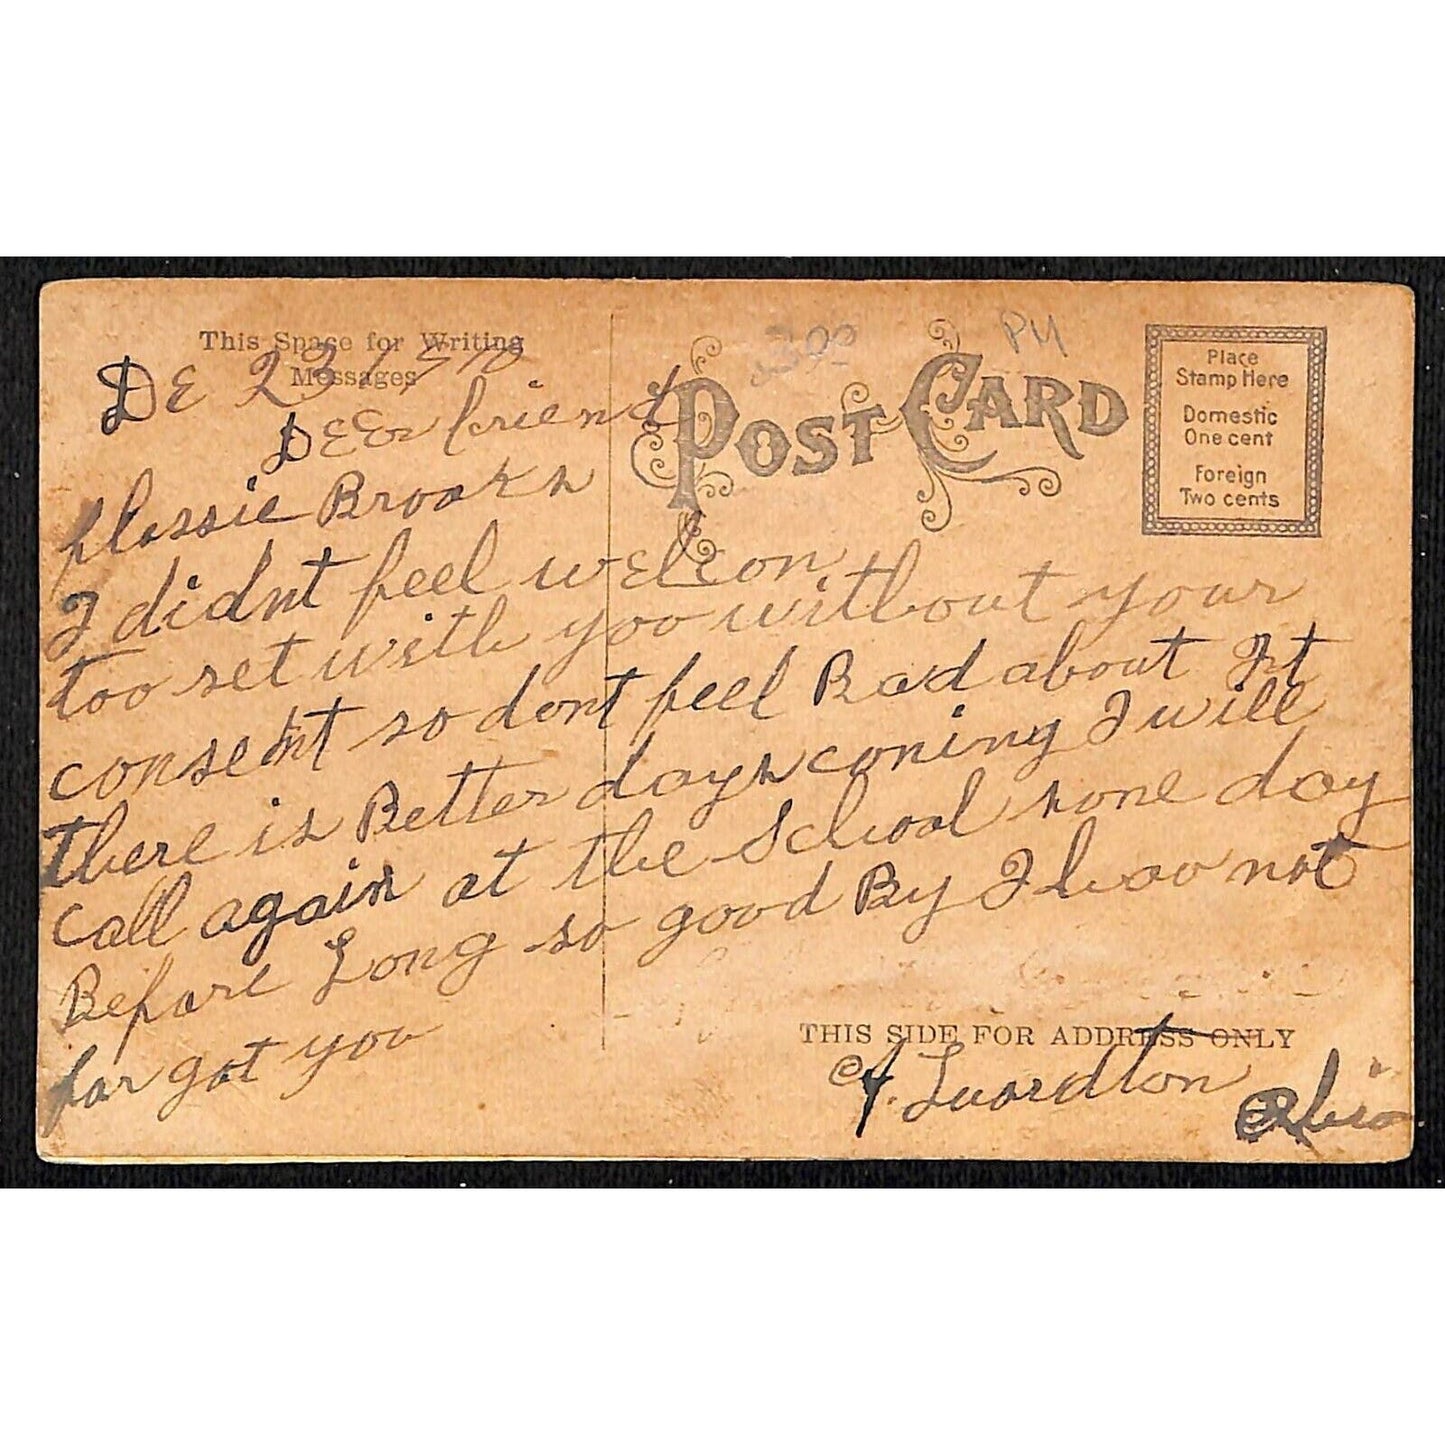 This Space for Writing
Messages
POST CARD
3.00
P4
Place
Stamp Here
Domestic
One cent
Foreign
Two cents
DE 23 1910
DEEr friend
flossie Brooks
I didnt feel welcon
too set with you without your
consent so dont feel Bad about It
there is Better days coning I will
call again at the School sone day
Before Long so good By I hoo not
for got you
THIS SIDE FOR ADDRESS ONLY
Ohio